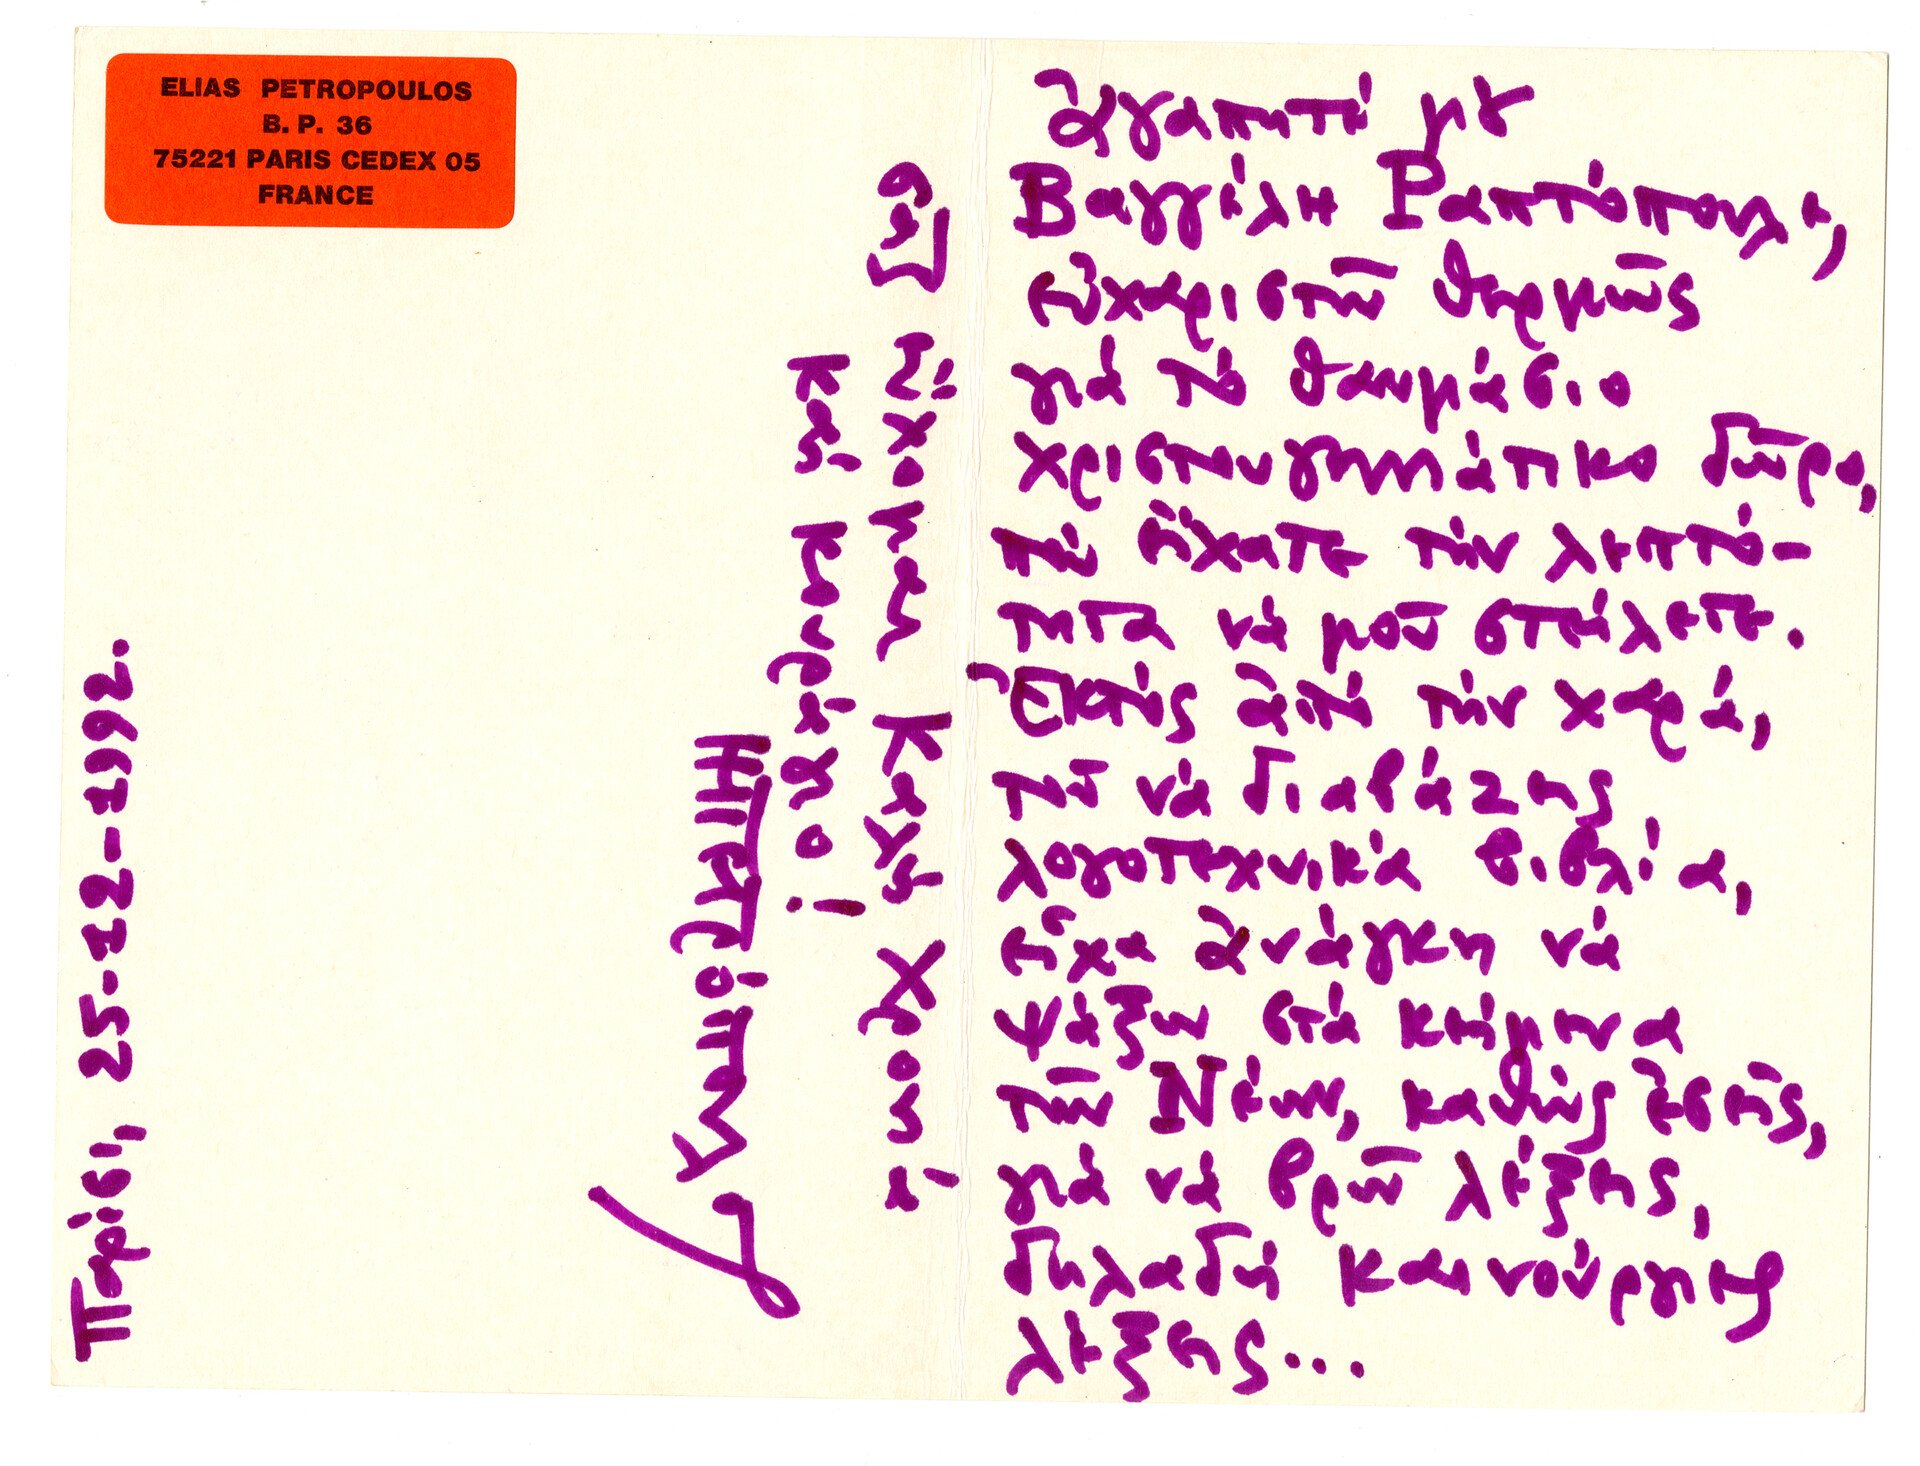 ELIAS PETROPOULOS
B. P. 36
75221 PARIS CEDEX 05
FRANCE
Παρίσι, 25-12-1992.
ἀγαπητέ μȣ
Βαγγέλη Ραπτόπουλε,
εὐχαριστῶ θερμῶς
γιά τό θαυμάσιο
χριστουγεννιάτικο δῶρο,
πού εἴχατε τήν λεπτό-
τητα νά μοῦ στείλετε.
Ἐκτός ἀπό τήν χαρά,
τοῦ νά διαβάζεις
λογοτεχνικά βιβλία,
εἶχα ἀνάγκη νά
ψάξω στά κείμενα
τῶν Νέων, καθώς ἐσεῖς,
γιά νά βρῶ λέξεις,
δηλαδή καινούργιες
λέξεις...
Σας εὔχομαι Καλή Χρονιά
καί κουράγιο!
Ηλίας Πετρόπουλος